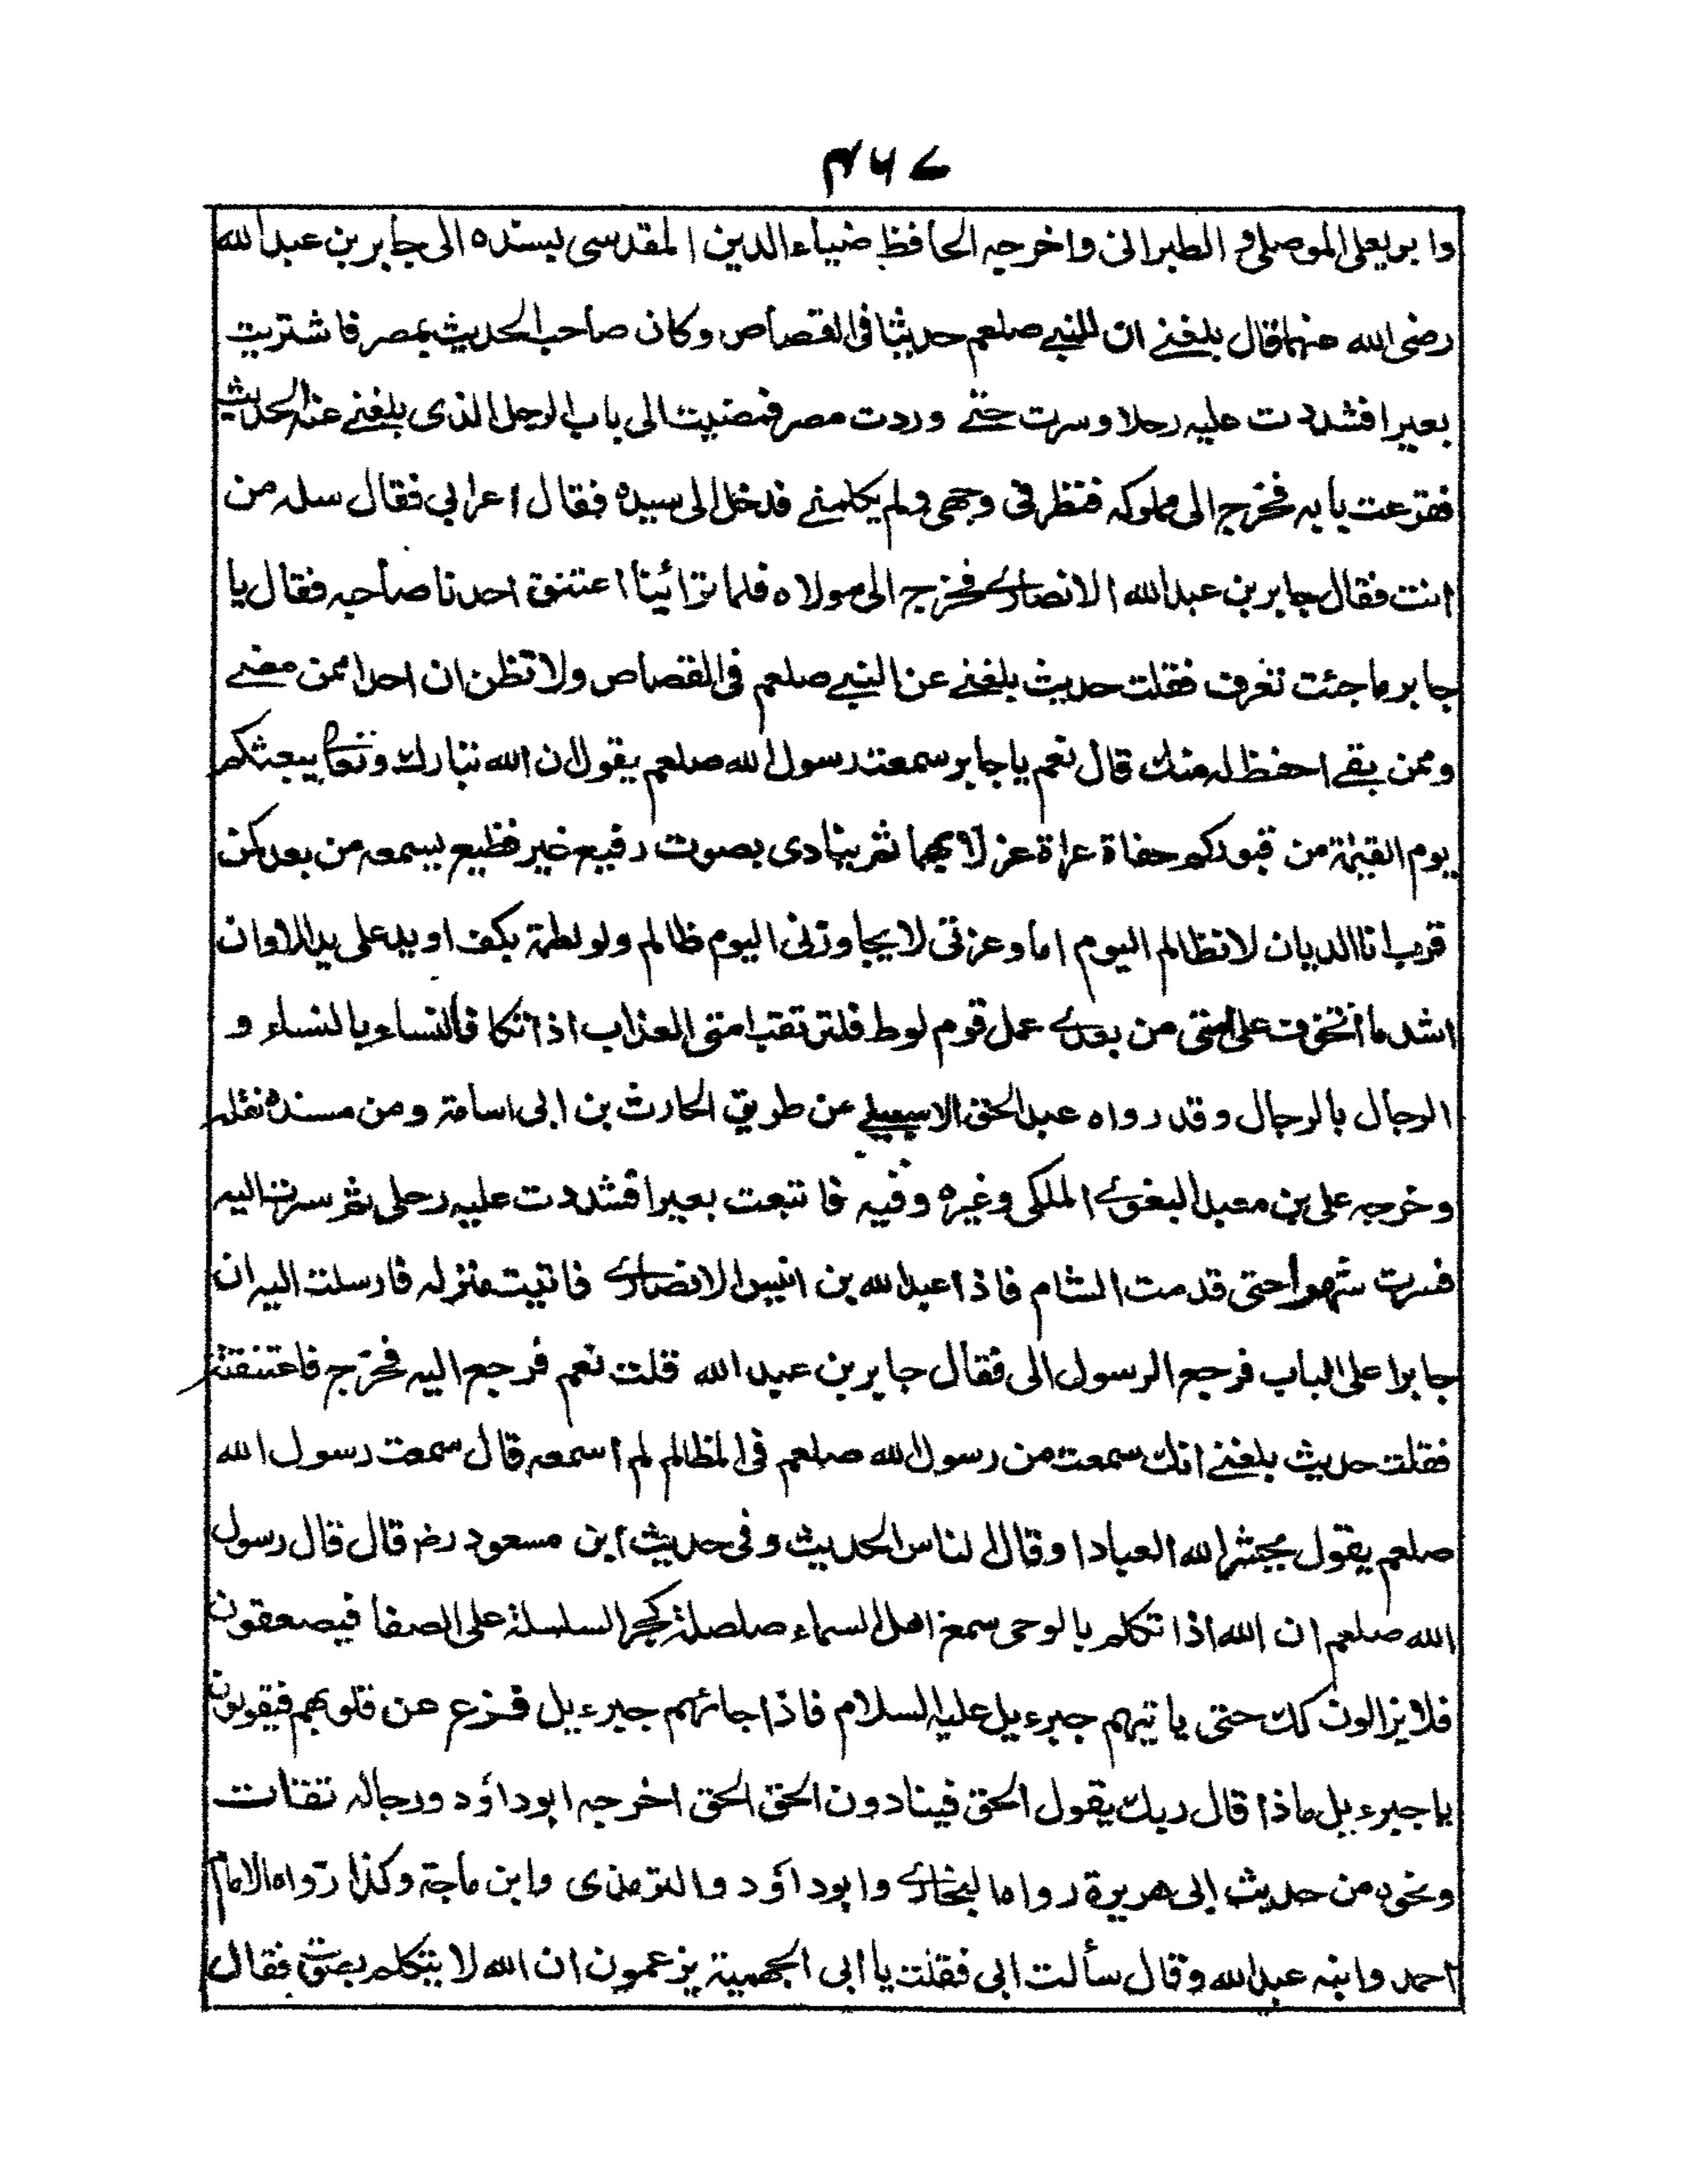 ۴۶۷
وابويعلى الموصلى و الطبرانى واخرجه الحافظ ضياء الدين المقدسى بسنده الى جابر بن عبدالله
رضى الله عنهما قال بلغنے ان للنبے صلعم حديثا فى القصاص وكان صاحب الحديث بمصر فاشتريت
بعيرا فشددت عليه رحلا وسرت حتے وردت مصر فمضيت الى باب الرجل الذى بلغنے عنه الحديث
فقرعت بابه فخرج الى مملوكه فنظر فى وجهى ولم يكلمنے فدخل الى سيده فقال اعرابي فقال سله من
انت فقال جابر بن عبدالله الانصارے فخرج الى مولاه فلما ترائينا اعتنق احدنا صاحبه فقال يا
جابر ما جئت تعرف فقلت حديث بلغنے عن النبے صلعم فى القصاص ولا تظن ان احدا ممن مضے
وممن بقے احفظ له منك قال نعم يا جابر سمعت رسول الله صلعم يقول ان الله تبارك وتعا يبعثكم
يوم القيمة من قبوركم حفاة عراة عزلا بهما ثم ينادى بصوت رفيع غير فظيع يسمعه من بعد كمن
قرب انا الديان لا تظالم اليوم اما وعزتى لا يجاوزنى اليوم ظالم ولو لطمة بكف او يد على يد الاوان
اشد ما اتخوف على امتى من بعدے عمل قوم لوط فلترتقب امتى العذاب اذا تكافأ النساء بالنساء و
الرجال بالرجال وقد رواه عبدالحق الاسبيلے عن طريق الحارث بن ابى اسامة ومن مسنده نقله
وخرجه على بن معبد البغوے الملكى وغيره وفيه فاتبعت بعيرا فشددت عليه رحلى ثم سرت اليه
فسرت شهرا حتى قدمت الشام فاذا عبدالله بن انيس الانصارے فاتيت منزله فارسلت اليه ان
جابرا على الباب فرجع الرسول الى فقال جابر بن عبدالله قلت نعم فرجع اليه فخرج فاعتنقته
فقلت حديث بلغنے انك سمعت من رسول الله صلعم فى المظالم لم اسمعه قال سمعت رسول الله
صلعم يقول يحشر الله العبادا وقال الناس الحديث وفى حديث ابن مسعود رض قال قال رسول
الله صلعم ان الله اذا تكلم بالوحى سمع اهل السماء صلصلة كجر السلسلة على الصفا فيصعقون
فلا يزالون كك حتى ياتيهم جبرءيل عليه السلام فاذا جائهم جبرءيل فزع عن قلوبهم فيقولون
يا جبرءيل ماذا قال ربك يقول الحق فينادون الحق الحق اخرجه ابوداؤد ورجاله ثقات
ونحوه من حديث ابى هريرة رواه البخارے وابوداؤد والترمذى وابن ماجة وكذا رواه الامام
احمد وابنه عبدالله وقال سألت ابى فقلت يا ابى الجهمية يزعمون ان الله لا يتكلم بصوت فقال